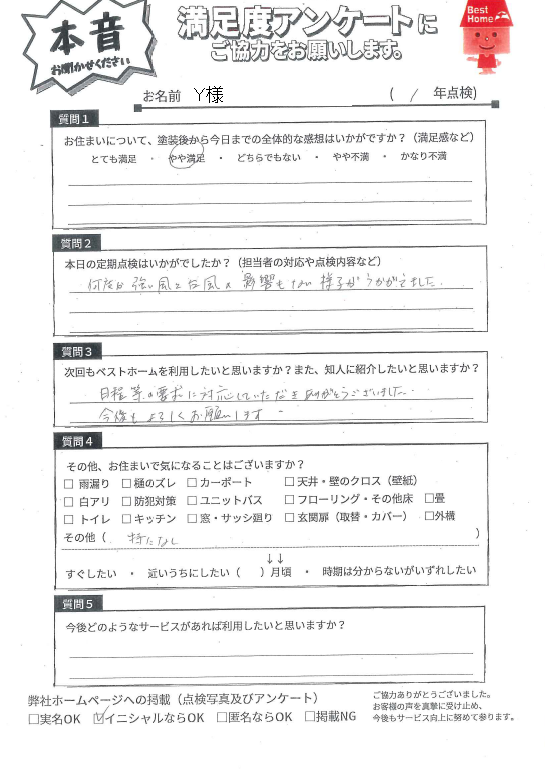 本音
お聞かせください
満足度アンケートに
ご協力をお願いします。
Best
Home
お名前 Y様 ( / 年点検)
質問1
お住まいについて、塗装後から今日までの全体的な感想はいかがですか?(満足感など)
とても満足 ・ やや満足 ・ どちらでもない ・ やや不満 ・ かなり不満
質問2
本日の定期点検はいかがでしたか?(担当者の対応や点検内容など)
何度か強い風と台風の影響もない様子がうかがえました。
質問3
次回もベストホームを利用したいと思いますか?また、知人に紹介したいと思いますか?
日程等の要求に対応していただきありがとうございました。
今後もよろしくお願いします
質問4
その他、お住まいで気になることはございますか?
□ 雨漏り □ 樋のズレ □ カーポート □ 天井・壁のクロス(壁紙)
□ 白アリ □ 防犯対策 □ ユニットバス □ フローリング・その他床 □畳
□ トイレ □ キッチン □ 窓・サッシ廻り □ 玄関扉(取替・カバー) □外構
その他( 特になし )
↓↓
すぐしたい ・ 近いうちにしたい( )月頃 ・ 時期は分からないがいずれしたい
質問5
今後どのようなサービスがあれば利用したいと思いますか?
弊社ホームページへの掲載(点検写真及びアンケート)
□実名OK ☑イニシャルならOK □匿名ならOK □掲載NG
ご協力ありがとうございました。
お客様の声を真摯に受け止め、
今後もサービス向上に努めて参ります。